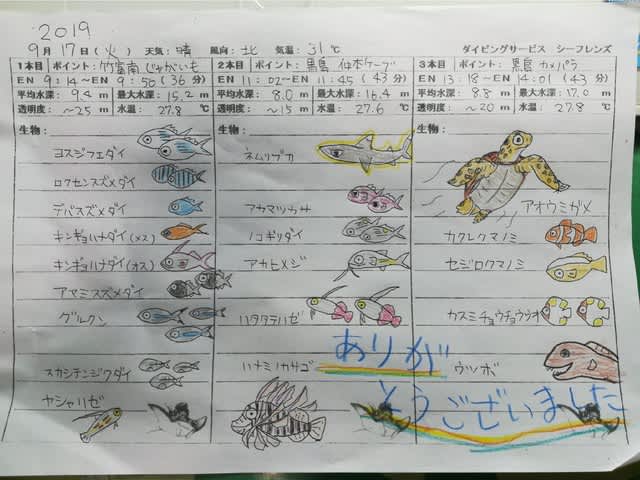 2019
9月17日(火) 天気:晴 風向:北 気温:31℃ ダイビングサービス シーフレンズ
1本目 ポイント: 竹富南 じゃがいも
EN 9:14〜EN 9:50 (36分)
平均水深: 9.4m 最大水深: 15.2m
透明度: 〜25m 水温: 27.8℃
生物:
ヨスジフエダイ
ロクセンスズメダイ
デバスズメダイ
キンギョハナダイ(メス)
キンギョハナダイ(オス)
アマミスズメダイ
グルクン
スカシテンジクダイ
ヤシャハゼ
2本目 ポイント: 黒島 仏本ケーブ
EN 11:02〜EN 11:45 (43分)
平均水深: 8.0m 最大水深: 16.4m
透明度: 〜15m 水温: 27.6℃
生物:
ネムリブカ
アカマツカサ
ノコギリダイ
アカヒメジ
ハタタテハゼ
ハナミノカサゴ
3本目 ポイント: 黒島 カメパラ
EN 13:18〜EN 14:01 (43分)
平均水深: 8.8m 最大水深: 17.0m
透明度: 〜20m 水温: 27.8℃
生物:
アオウミガメ
カクレクマノミ
セジロクマノミ
カスミチョウチョウウオ
ウツボ
ありが
とうございました